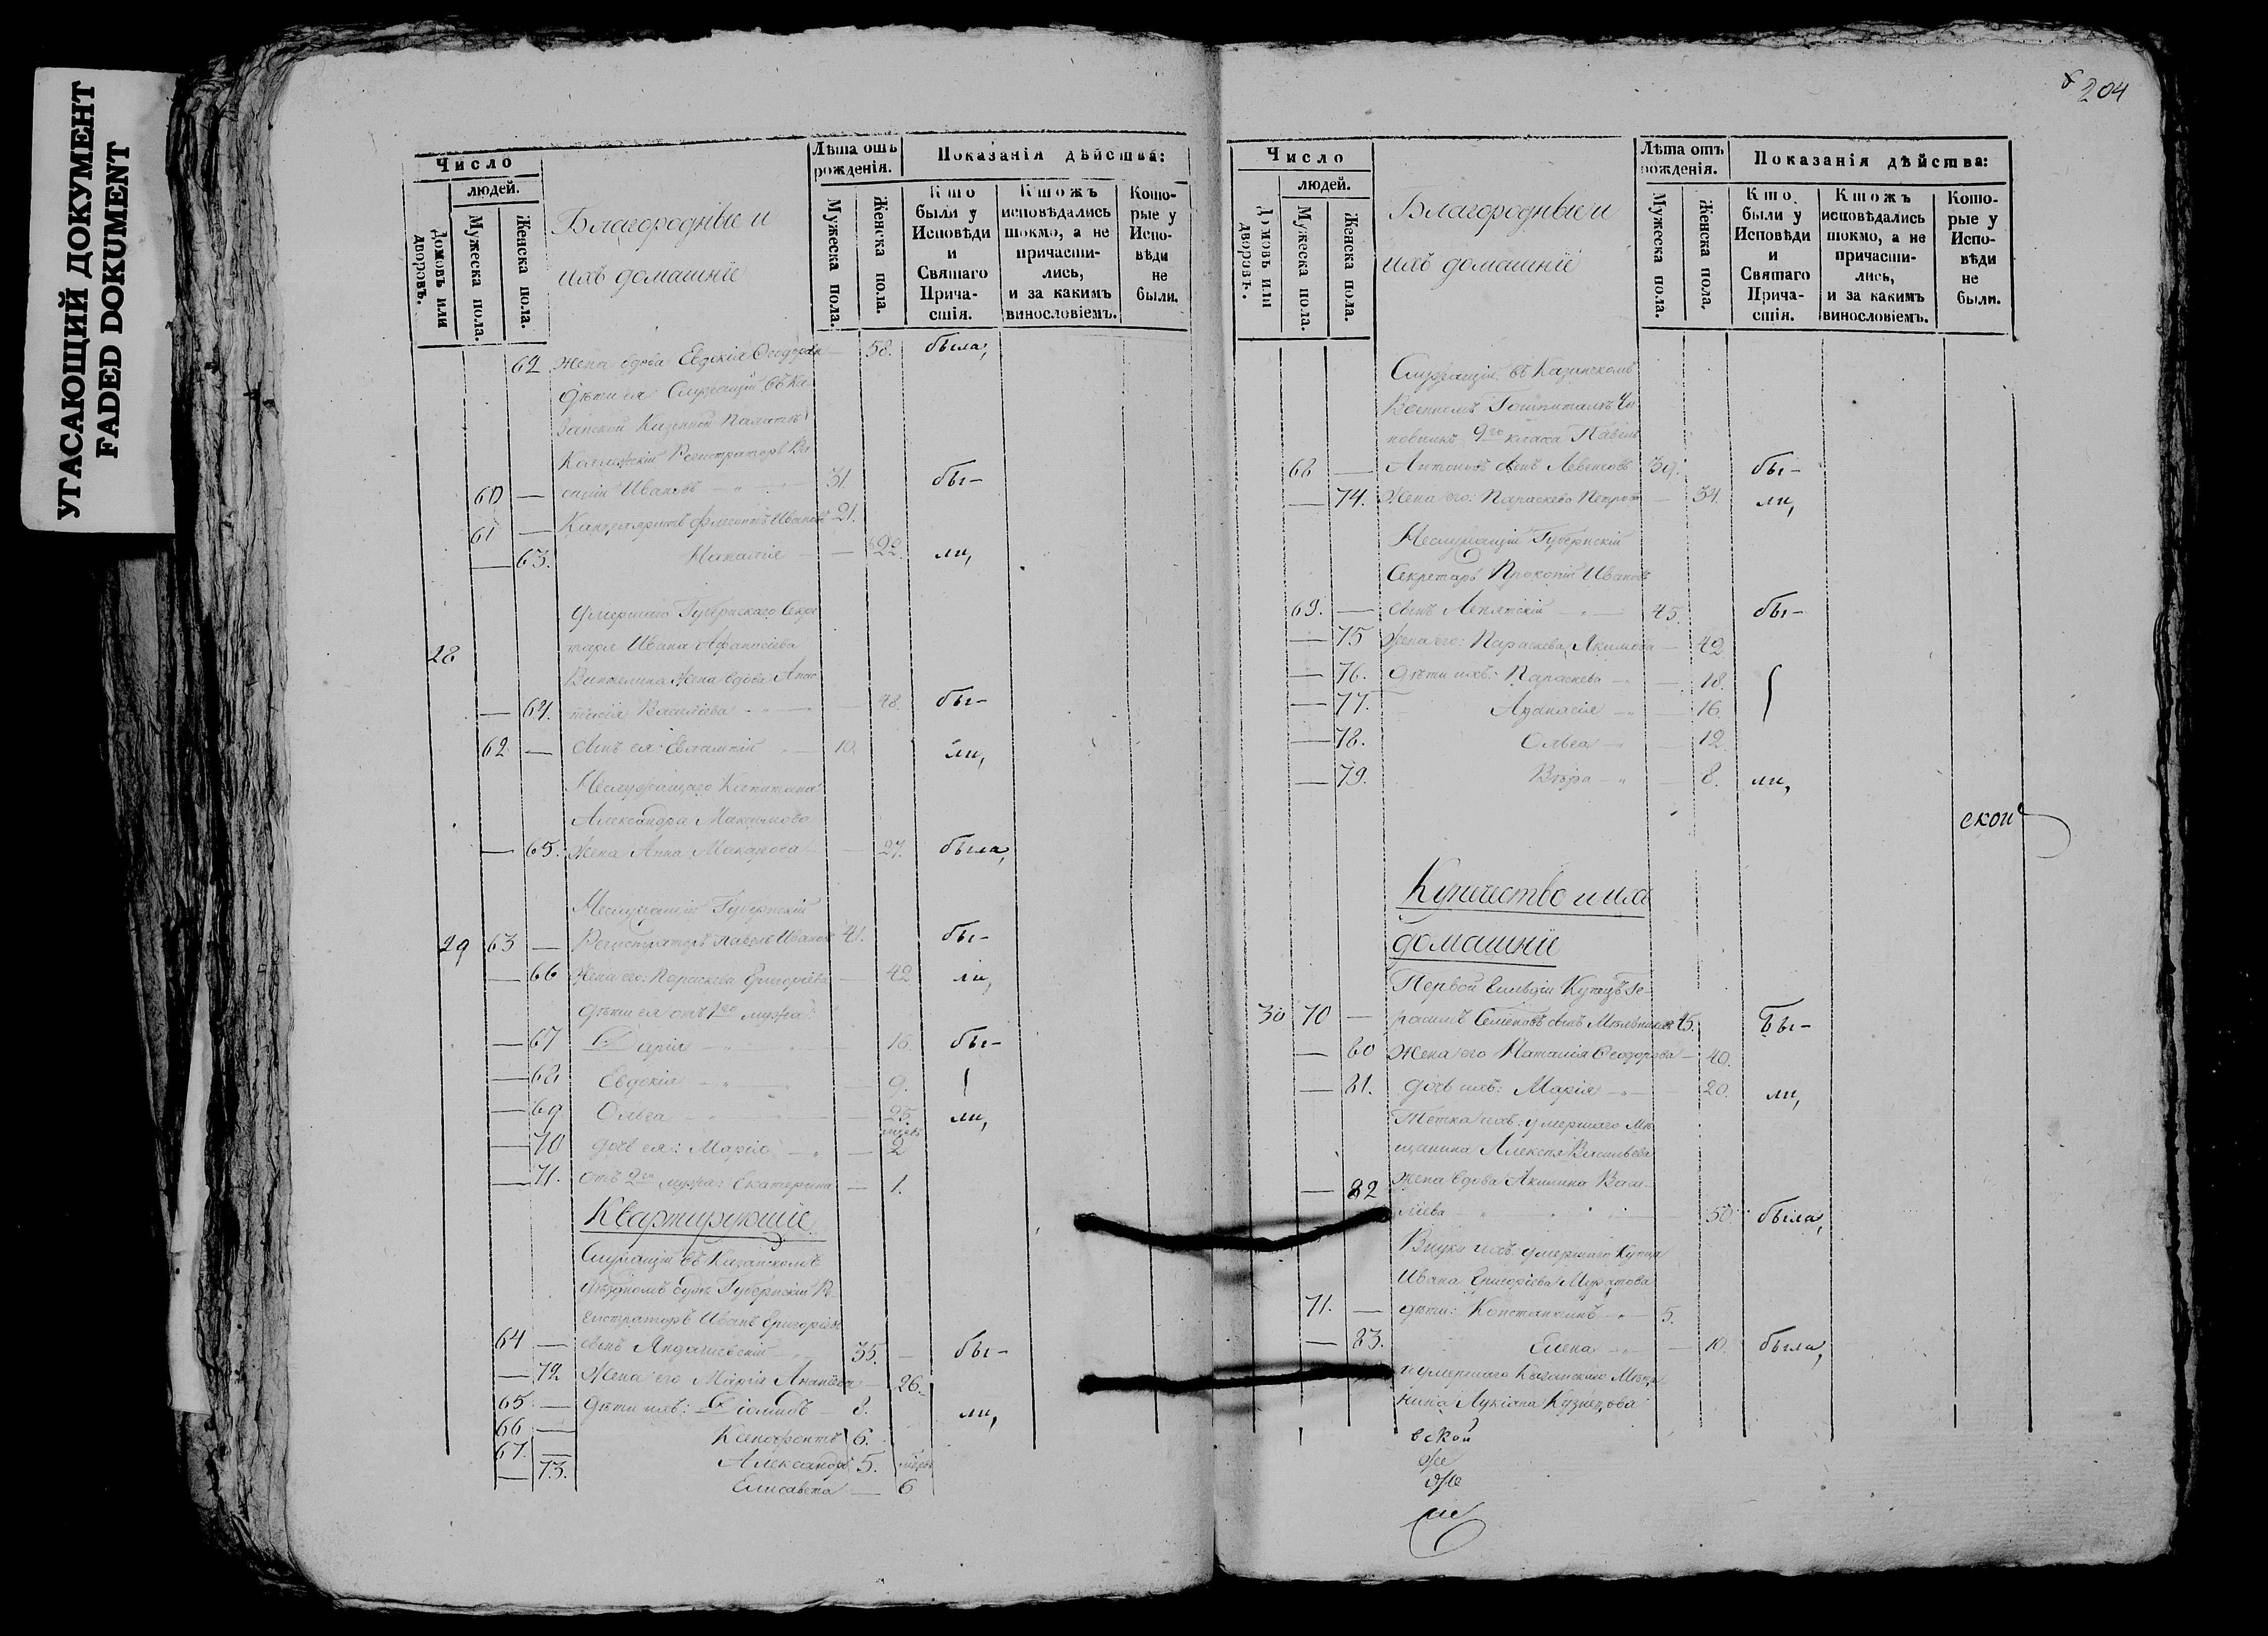 УГАСАЮЩИЙ ДОКУМЕНТ
FADED DOKUMENT
Число
людей.
Домовъ или дворовъ.
Мужеска пола.
Женска пола.
Благородные и
ихъ домашніе
Лѣта отъ рожденія.
Мужеска пола.
Женска пола.
Показанія дѣйства:
Кто были у Исповѣди и Святаго Причастія.
Ктожъ исповѣдались токмо, а не причастились, и за какимъ винословіемъ.
Которые у Исповѣди не были.
62 жена вдова Евдокія Ѳеодорова — 58. была,
дѣти ея: Служащій въ Ка-
занской Казенной Палатѣ
Коллежскій Регистраторъ Ва-
60 — силій Ивановъ 31 бы-
61 — Канцеляристъ Ивановъ 21.
— 63. Наталія — 22. ли,
Умершаго Губернскаго Секре-
28 таря Ивана Афанасіева
жена вдова Анас-
— 64. тасія Васильева — 48. бы-
62. — сынъ ея: Евлампій 10. ли,
Неслужащаго Капитана
Александра Максимова
— 65. жена Анна Макарова — 27. была,
Неслужащій Губернскій
29 63 — Регистраторъ Павелъ Ивановъ 41. бы-
— 66 Жена его: Параскева Григоріева — 42 ли,
дѣти ея отъ 1го мужа:
— 67 Дарія — 16. бы-
— 68 Евдокія — 9.
— 69 Ольга — 25. ли,
— 70 дочь ея: Марія — 2
— 71. отъ 2го мужа: Екатерина — 1.
Квартирующіе
Служащій въ Казанскомъ
Уѣздномъ судѣ Губернскій Ре-
гистраторъ Иванъ Григоріевъ
64 — сынъ 35. — бы-
— 72 Жена его Марія Ананіева — 26.
65. — дѣти ихъ: Діомидъ — 8. ли,
66 — Ксенофонтъ 6.
67. — Александръ 5.
— 73. Елисавета — 6
204
Число
людей.
Домовъ или дворовъ.
Мужеска пола.
Женска пола.
Благородные и
ихъ домашніе
Лѣта отъ рожденія.
Мужеска пола.
Женска пола.
Показанія дѣйства:
Кто были у Исповѣди и Святаго Причастія.
Ктожъ исповѣдались токмо, а не причастились, и за какимъ винословіемъ.
Которые у Исповѣди не были.
Служащій въ Казанскомъ
Военномъ Гошпиталѣ Чи-
новникъ 9го класса Павелъ
68 — Антоновъ сынъ 39. бы-
— 74. Жена его: Параскева Петрова — 34. ли,
Неслужащій Губернскій
Секретарь Прокопій Ивановъ
69. — сынъ 45. бы-
— 75 жена его: Параскева Якимова — 42
— 76. дѣти ихъ: Параскева — 18.
— 77. Аѳанасія — 16.
— 78. Ольга — 12.
— 79. Вѣра — 8. ли,
ской
Купечество и ихъ
домашніе
Первой гильдіи Купецъ Ге-
30 70 — расимъ Семеновъ сынъ Мѣльниковъ 45. бы-
— 80 Жена его Наталія Ѳеодорова — 40.
— 81. дочь ихъ: Марія — 20. ли,
Тетка ихъ: умершаго Мѣ-
щанина Алексѣя Васильева
— 82 жена вдова Акилина Васи-
ліева 50. была,
Внуки ихъ умершаго Купца
Ивана Григоріева Муратова
71. — дѣти: Константинъ 5.
— 83. Елена — 10. была,
умершаго Казанскаго Мѣща-
нина Лукіана Кузнецова
вской
же
же